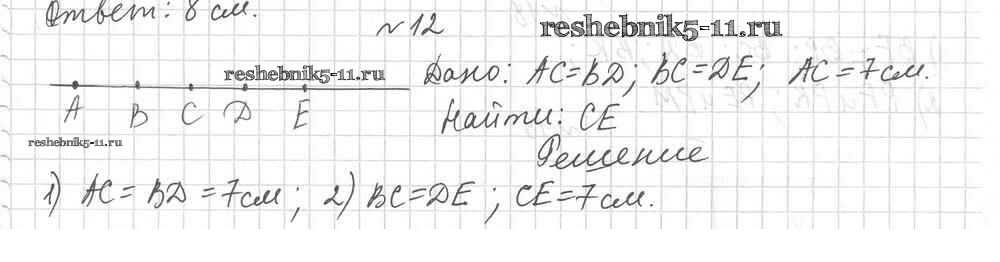 Ответ: 8 см.
№12
reshebnik5-11.ru
reshebnik5-11.ru
Дано: AC=BD; BC=DE; AC=7см.
A B C D E
Найти: CE
reshebnik5-11.ru
Решение
1) AC=BD=7см; 2) BC=DE; CE=7см.